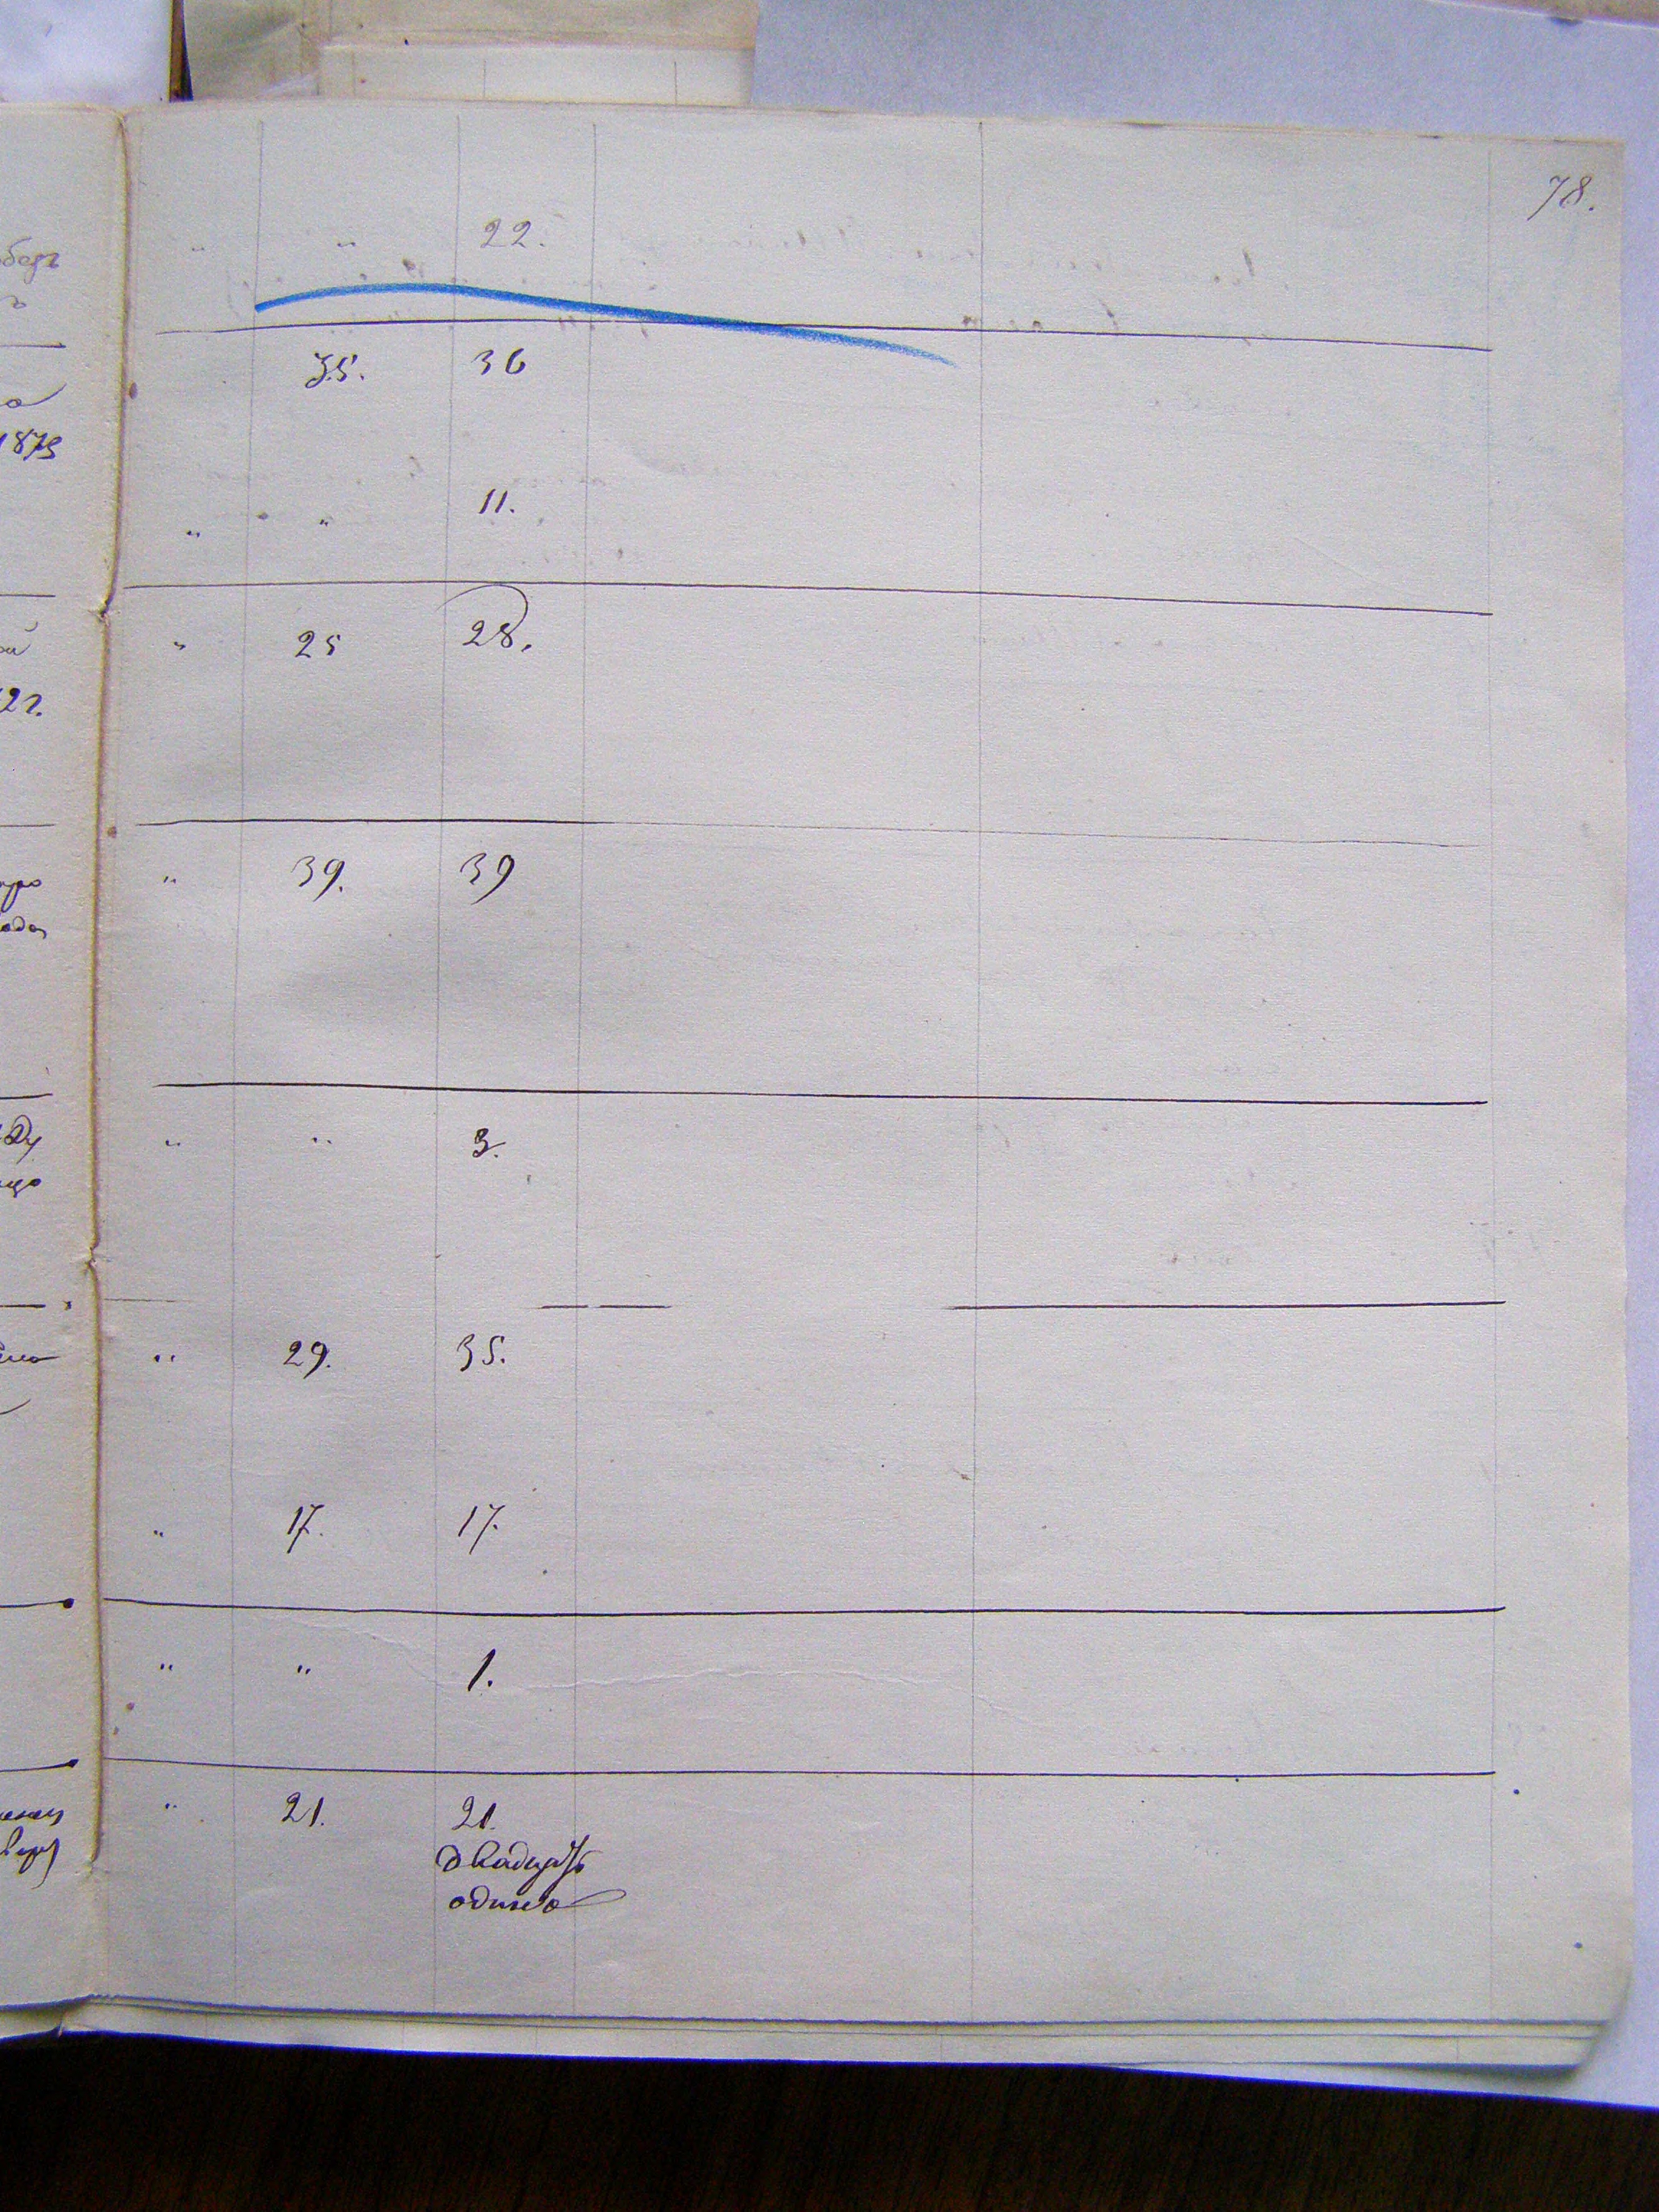 78.
" " 22.
35. 36
1873
" " 11.
" 25 28.
" 39. 39
" " 3.
" 29. 35.
" 17. 17.
" " 1.
" 21. 21.
двадцать
одинъ